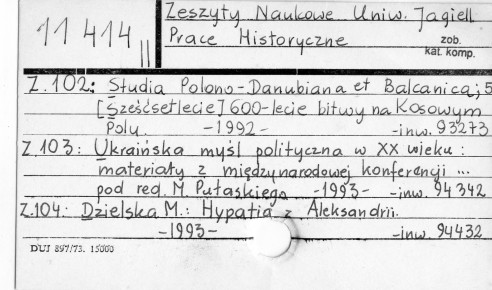 11 414 II
Zeszyty Naukowe Uniw. Jagiell
Prace Historyczne
zob.
kat. komp.
Z.102: Studia Polono-Danubiana et Balcanica; 5
[Sześćsetlecie] 600-lecie bitwy na Kosowym
Polu. -1992- -inw. 93273
Z.103: Ukraińska myśl polityczna w XX wieku:
materiały z międzynarodowej konferencji ...
pod red. M. Pułaskiego -1993- -inw. 94342
Z.104: Dzielska M.: Hypatia z Aleksandrii.
-1993- -inw. 94432
DUJ 897/73. 15000